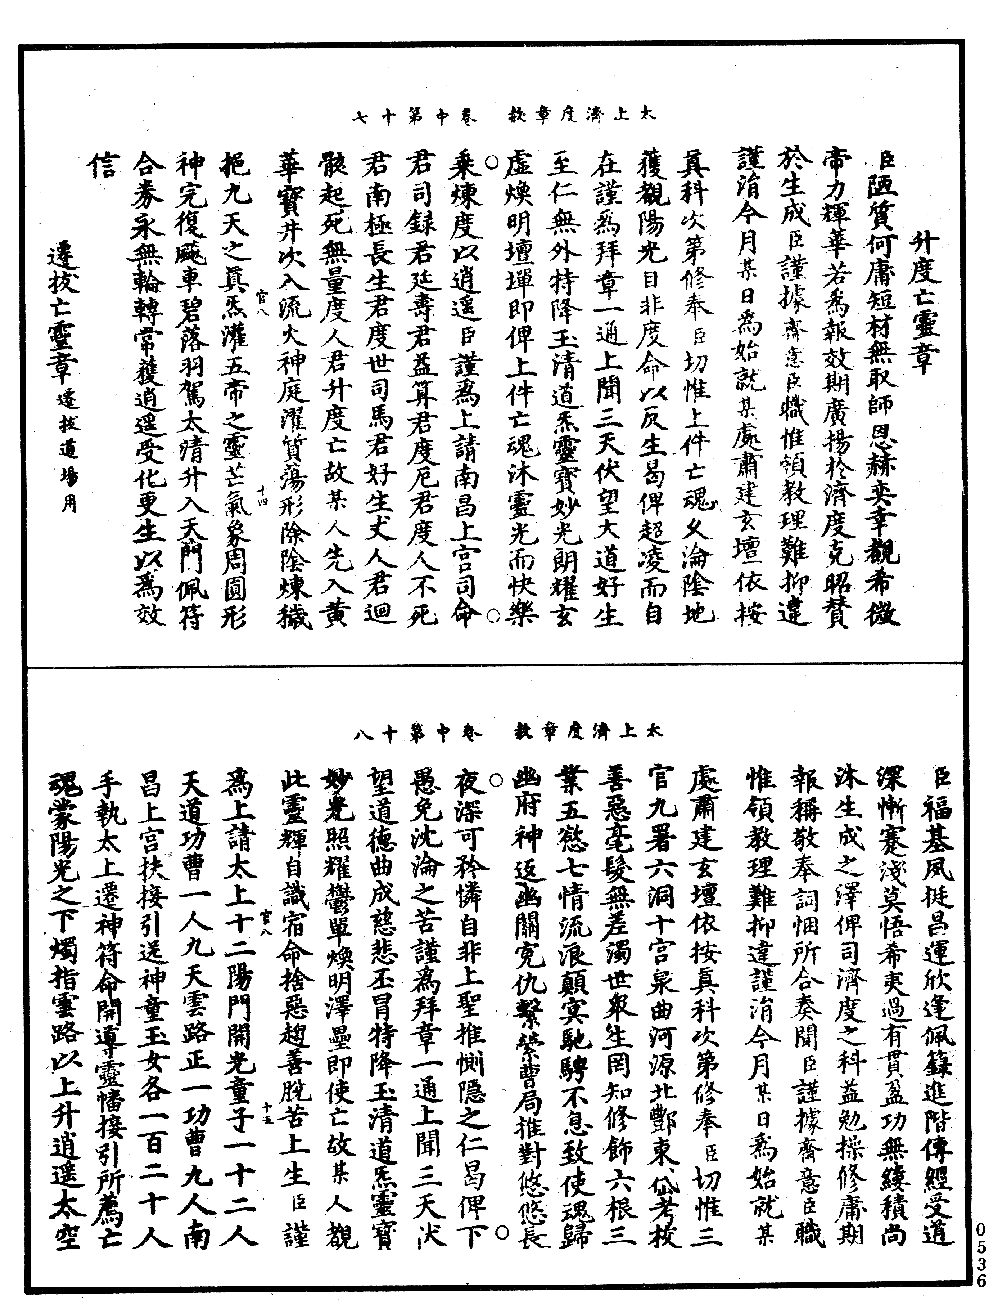 太上濟度章赦　卷中第十七
升度亡靈章
臣陋質何庸短材無取師恩赫奕幸觀希微
帝力輝華若爲報效期廣揚於濟度克昭贊
於生成臣謹據齋意臣職惟領教理難抑違
謹涓今月某日爲始就某處肅建玄壇依按
眞科次第修奉臣切惟上件亡魂久淪陰地
獲觀陽光自非度命以反生曷俾超凌而自
在謹爲拜章一通上聞三天伏望大道好生
至仁無外特降玉清道炁靈寶妙光朗耀玄
虛煥明壇墠即俾上件亡魂沐靈光而快樂
乘煉度以逍遥臣謹爲上請南昌上宮司命
君司録君延壽君益算君度厄君度人不死
君南極長生君度世司馬君好生丈人君迴
骸起死無量度人君升度亡故某人先入黄
華寶井次入流火神庭濯質蕩形除陰煉穢
挹九天之眞炁灌五帝之靈芒氣象周圓形
神完復飈車碧落羽駕太清升入天門佩符
合券永無輪轉常獲逍遥受化更生以爲效
信
遷拔亡靈章 遷拔道場用
官八
十四
太上濟度章赦　卷中第十八
臣福基夙挺昌運欣逢佩籙進階傳經受道
深慚蹇淺莫悟希夷過有貫盈功無縷積尚
沐生成之澤俾司濟度之科益勉操修庸期
報稱敬奉詞悃所合奏聞臣謹據齋意臣職
惟領教理難抑違謹涓今月某日爲始就某
處肅建玄壇依按眞科次第修奉臣切惟三
官九署六洞十宮泉曲河源北酆東岱考校
善惡毫髮無差濁世衆生罔知修飾六根三
業五慾七情流浪顛冥馳騁不息致使魂歸
幽府神返幽關寃仇繫縈曹局推對悠悠長
夜深可矜憐自非上聖推惻隱之仁曷俾下
愚免沈淪之苦謹爲拜章一通上聞三天伏
望道德曲成慈悲丕冒特降玉清道炁靈寶
妙光照耀鬱單煥明澤壘即使亡故某人觀
此靈輝自識宿命捨惡趨善脫苦上生臣謹
爲上請太上十二陽門開光童子一十二人
天道功曹一人九天雲路正一功曹九人南
昌上宮扶接引送神童玉女各一百二十人
手執太上遷神符命開導靈幡接引所薦亡
魂蒙陽光之下燭指雲路以上升逍遥太空
官八
十五
0536